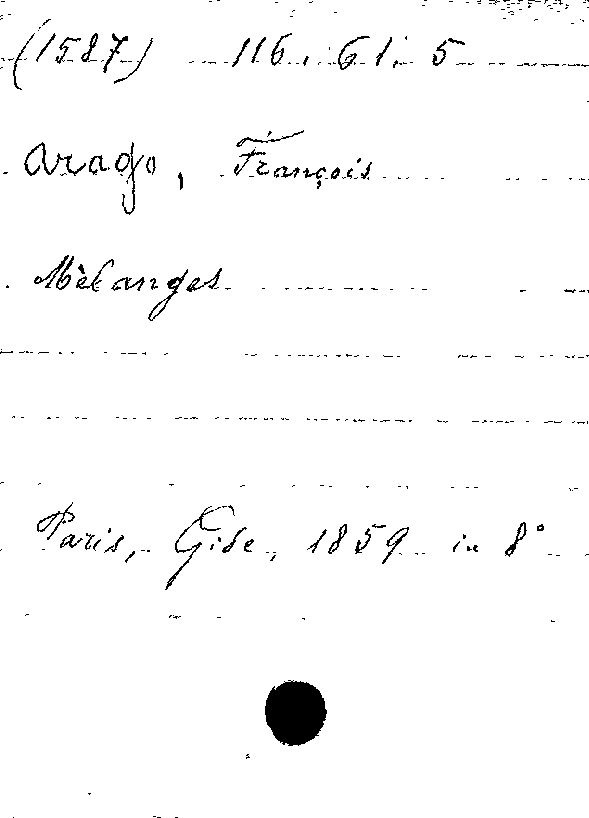 (1587) 116. 61. 5
Arago, François
Mèlanges
Paris, Gide, 1859 in 8°